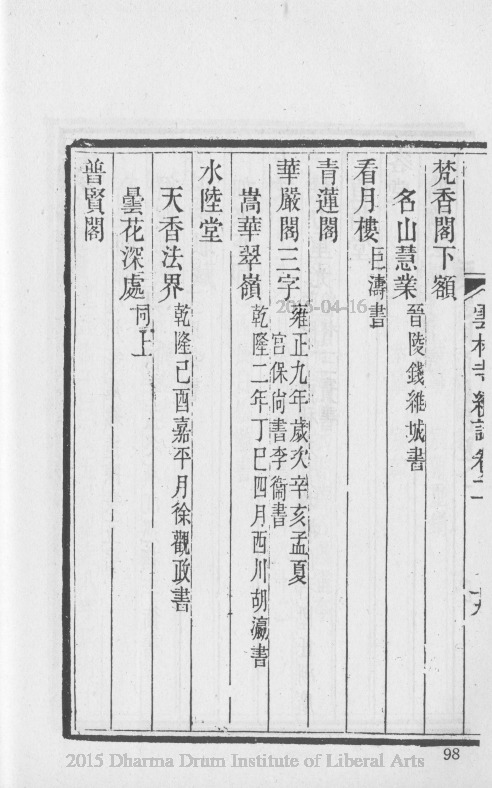 雲林寺續志卷二
梵香閣下額
名山慧業 晉陵錢維城書
看月樓 巨濤書
青蓮閣
華嚴閣三字 雍正九年歲次辛亥孟夏
宮保尙書李衞書
嵩華翠嶺 乾隆二年丁巳四月西川胡瀛書
水陸堂
天香法界 乾隆己酉嘉平月徐觀政書
曇花深處 同上
普賢閣
2015-04-16
2015 Dharma Drum Institute of Liberal Arts
98